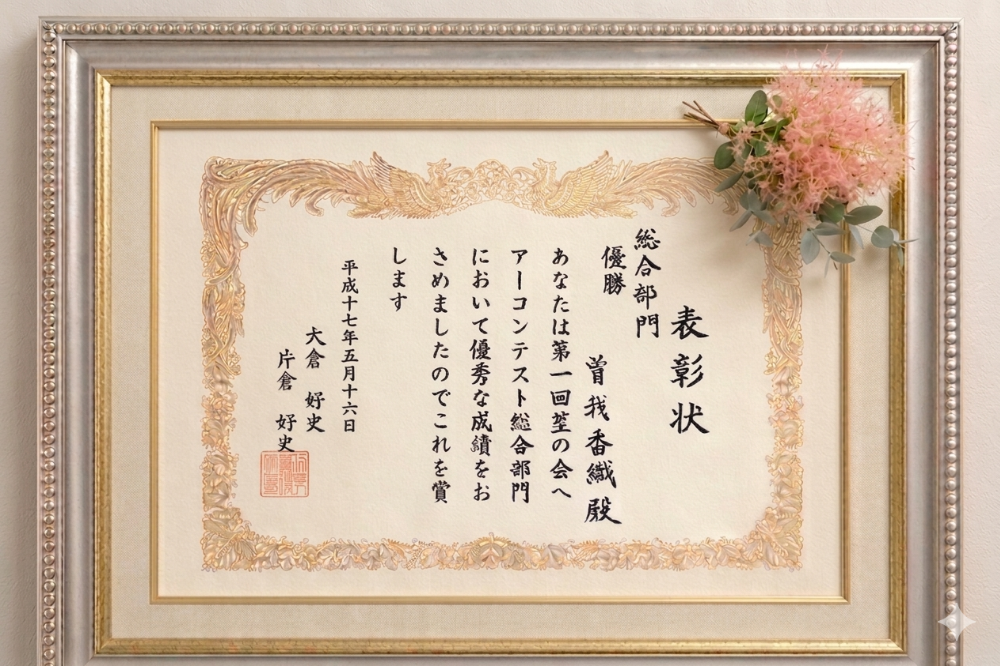 表彰状
総合部門
優勝
曽我香織殿
あなたは第一回笙の会へ
アーコンテスト総合部門
において優秀な成績をお
さめましたのでこれを賞
します
平成十七年五月十六日
大倉 好史
片倉 好史